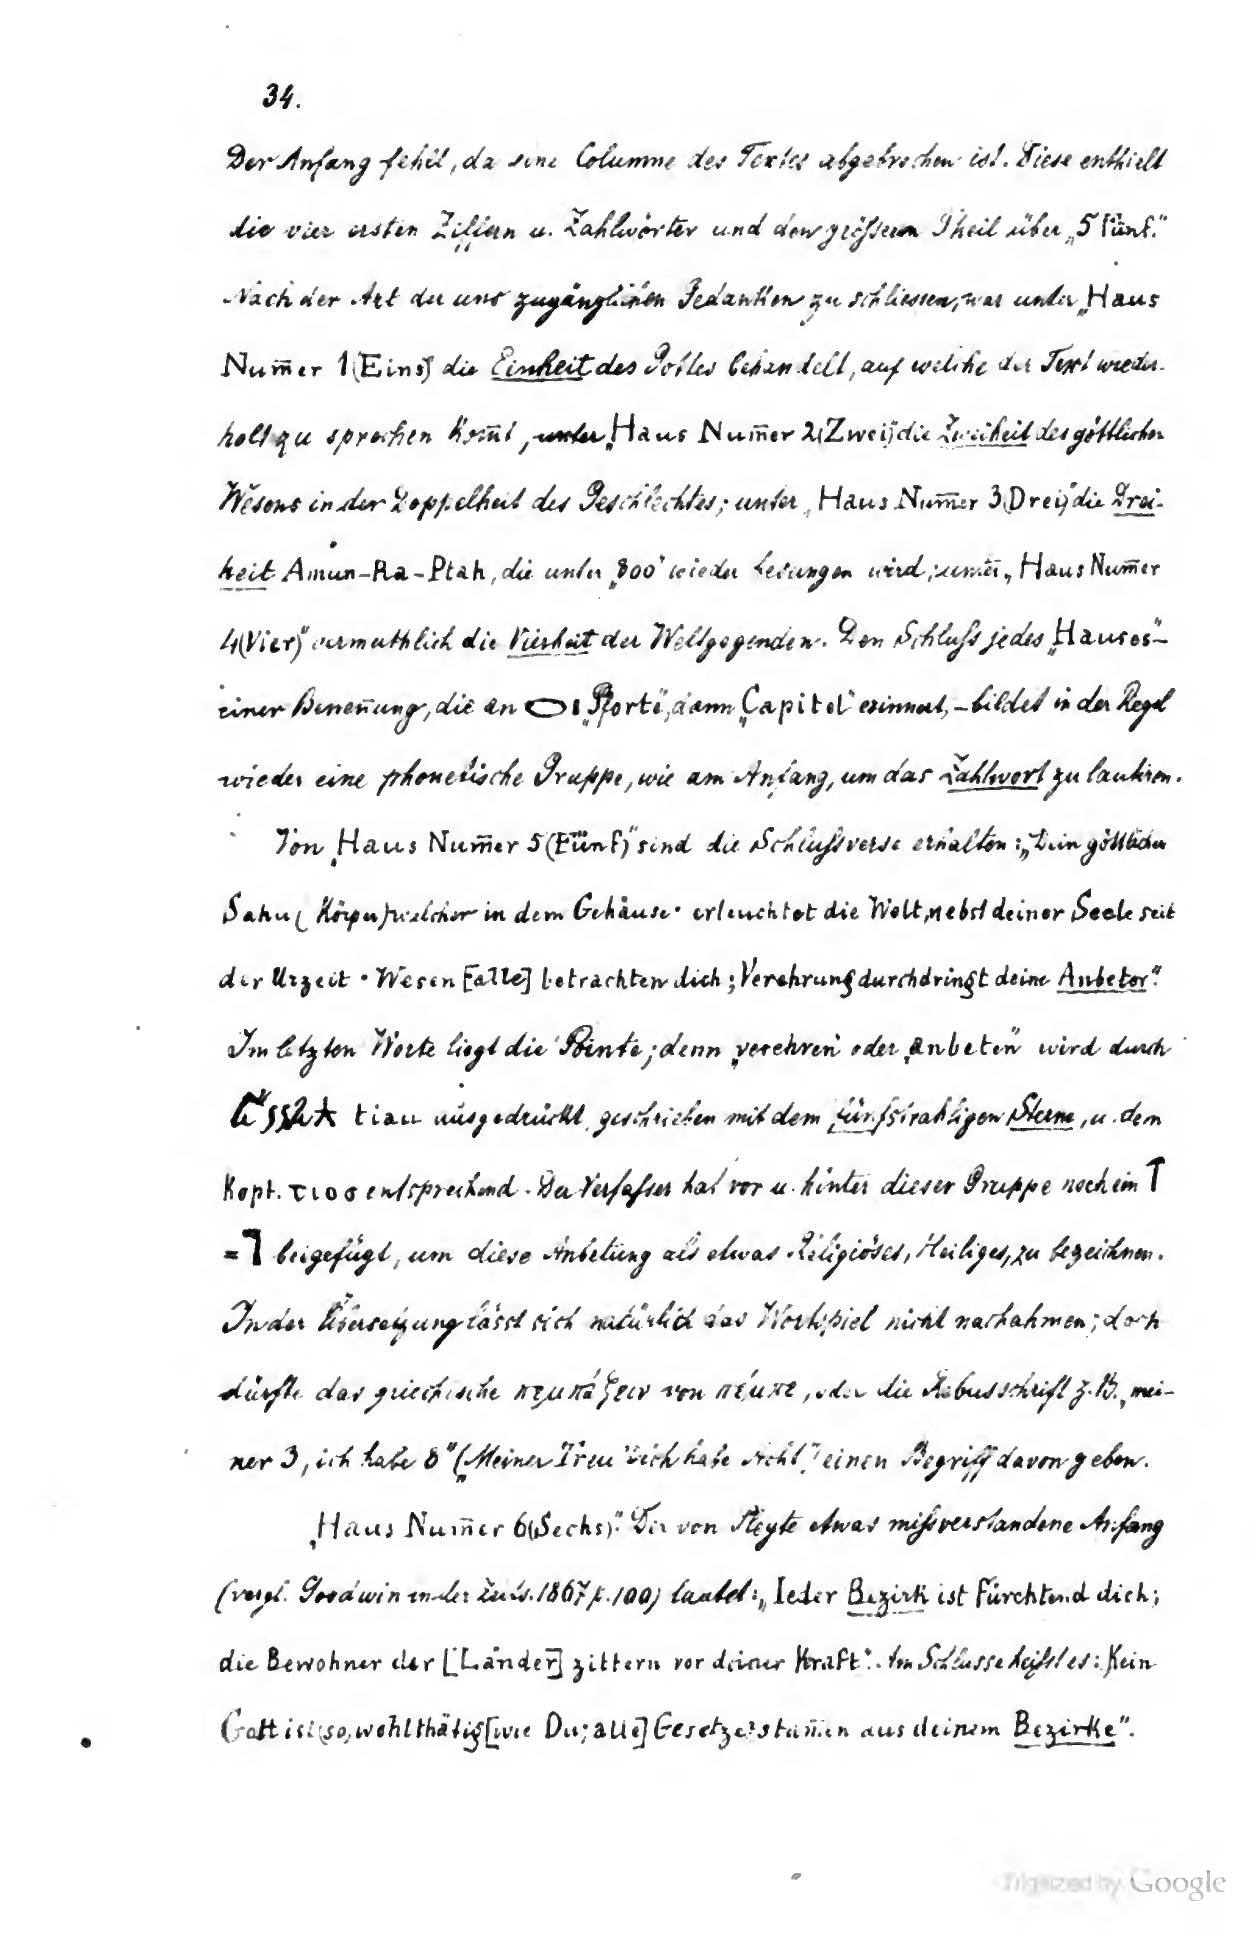 34.
Der Anfang fehlt, da eine Columne des Textes abgebrochen ist. Diese enthielt
die vier ersten Ziffern u. Zahlwörter und den grössern Theil über „5 Fünf."
Nach der Art der uns zugänglichen Gedanken zu schliessen, war unter „Haus
Num̄er 1 (Eins)" die Einheit des Gottes behandelt, auf welche der Text wieder-
holt zu sprechen kom̄t, unter „Haus Num̄er 2 (Zwei)" die Zweiheit des göttlichen
Wesens in der Doppelheit des Geschlechtes; unter „Haus Num̄er 3 (Drei)" die Drei-
heit Amun-Ra-Ptah, die unter „300" wieder besungen wird; unter „Haus Num̄er
4 (Vier)" vermuthlich die Vierheit der Weltgegenden. Den Schluſs jedes „Hauses"–
einer Beneñung, die an „Pforte", dann „Capitel" erinnert, – bildet in der Regel
wieder eine phonetische Gruppe, wie am Anfang, um das Zahlwort zu lautiren.
Von „Haus Num̄er 5 (Fünf)" sind die Schluſsverse erhalten: „Dein göttlicher
Sahu (Körper) welcher in dem Gehäuse · erleuchtet die Welt, nebst deiner Seele seit
der Urzeit · Wesen [alle] betrachten dich; Verehrung durchdringt deine Anbeter."
Im letzten Worte liegt die Pointe; denn „verehren" oder „anbeten" wird durch
tiau ausgedrückt, geschrieben mit dem fünfstrahligen Sterne, u. dem
Kopt. entsprechend. Der Verfaſser hat vor u. hinter dieser Gruppe noch ein
= beigefügt, um diese Anbetung als etwas Religiöses, Heiliges, zu bezeichnen.
In der Übersetzung lässt sich natürlich das Wortspiel nicht nachahmen; doch
dürfte das griechische von πέμπε, oder die Rebusschrift z. B. „mei-
ner 3, ich habe 8" („Meiner Treu" ich habe Acht") einen Begriff davon geben.
„Haus Num̄er 6 (Sechs)." Der von Pleyte etwas miſsverstandene Anfang
(vergl. Goodwin in der Zeits. 1867 p. 100) lautet: „Ieder Bezirk ist fürchtend dich;
die Bewohner der [Länder] zittern vor deiner Kraft". Im Schlusse heiſst es: „Kein
Gott ist so, wohlthätig [wie Du; alle] Gesetze stam̄en aus deinem Bezirke".
Digitized by Google